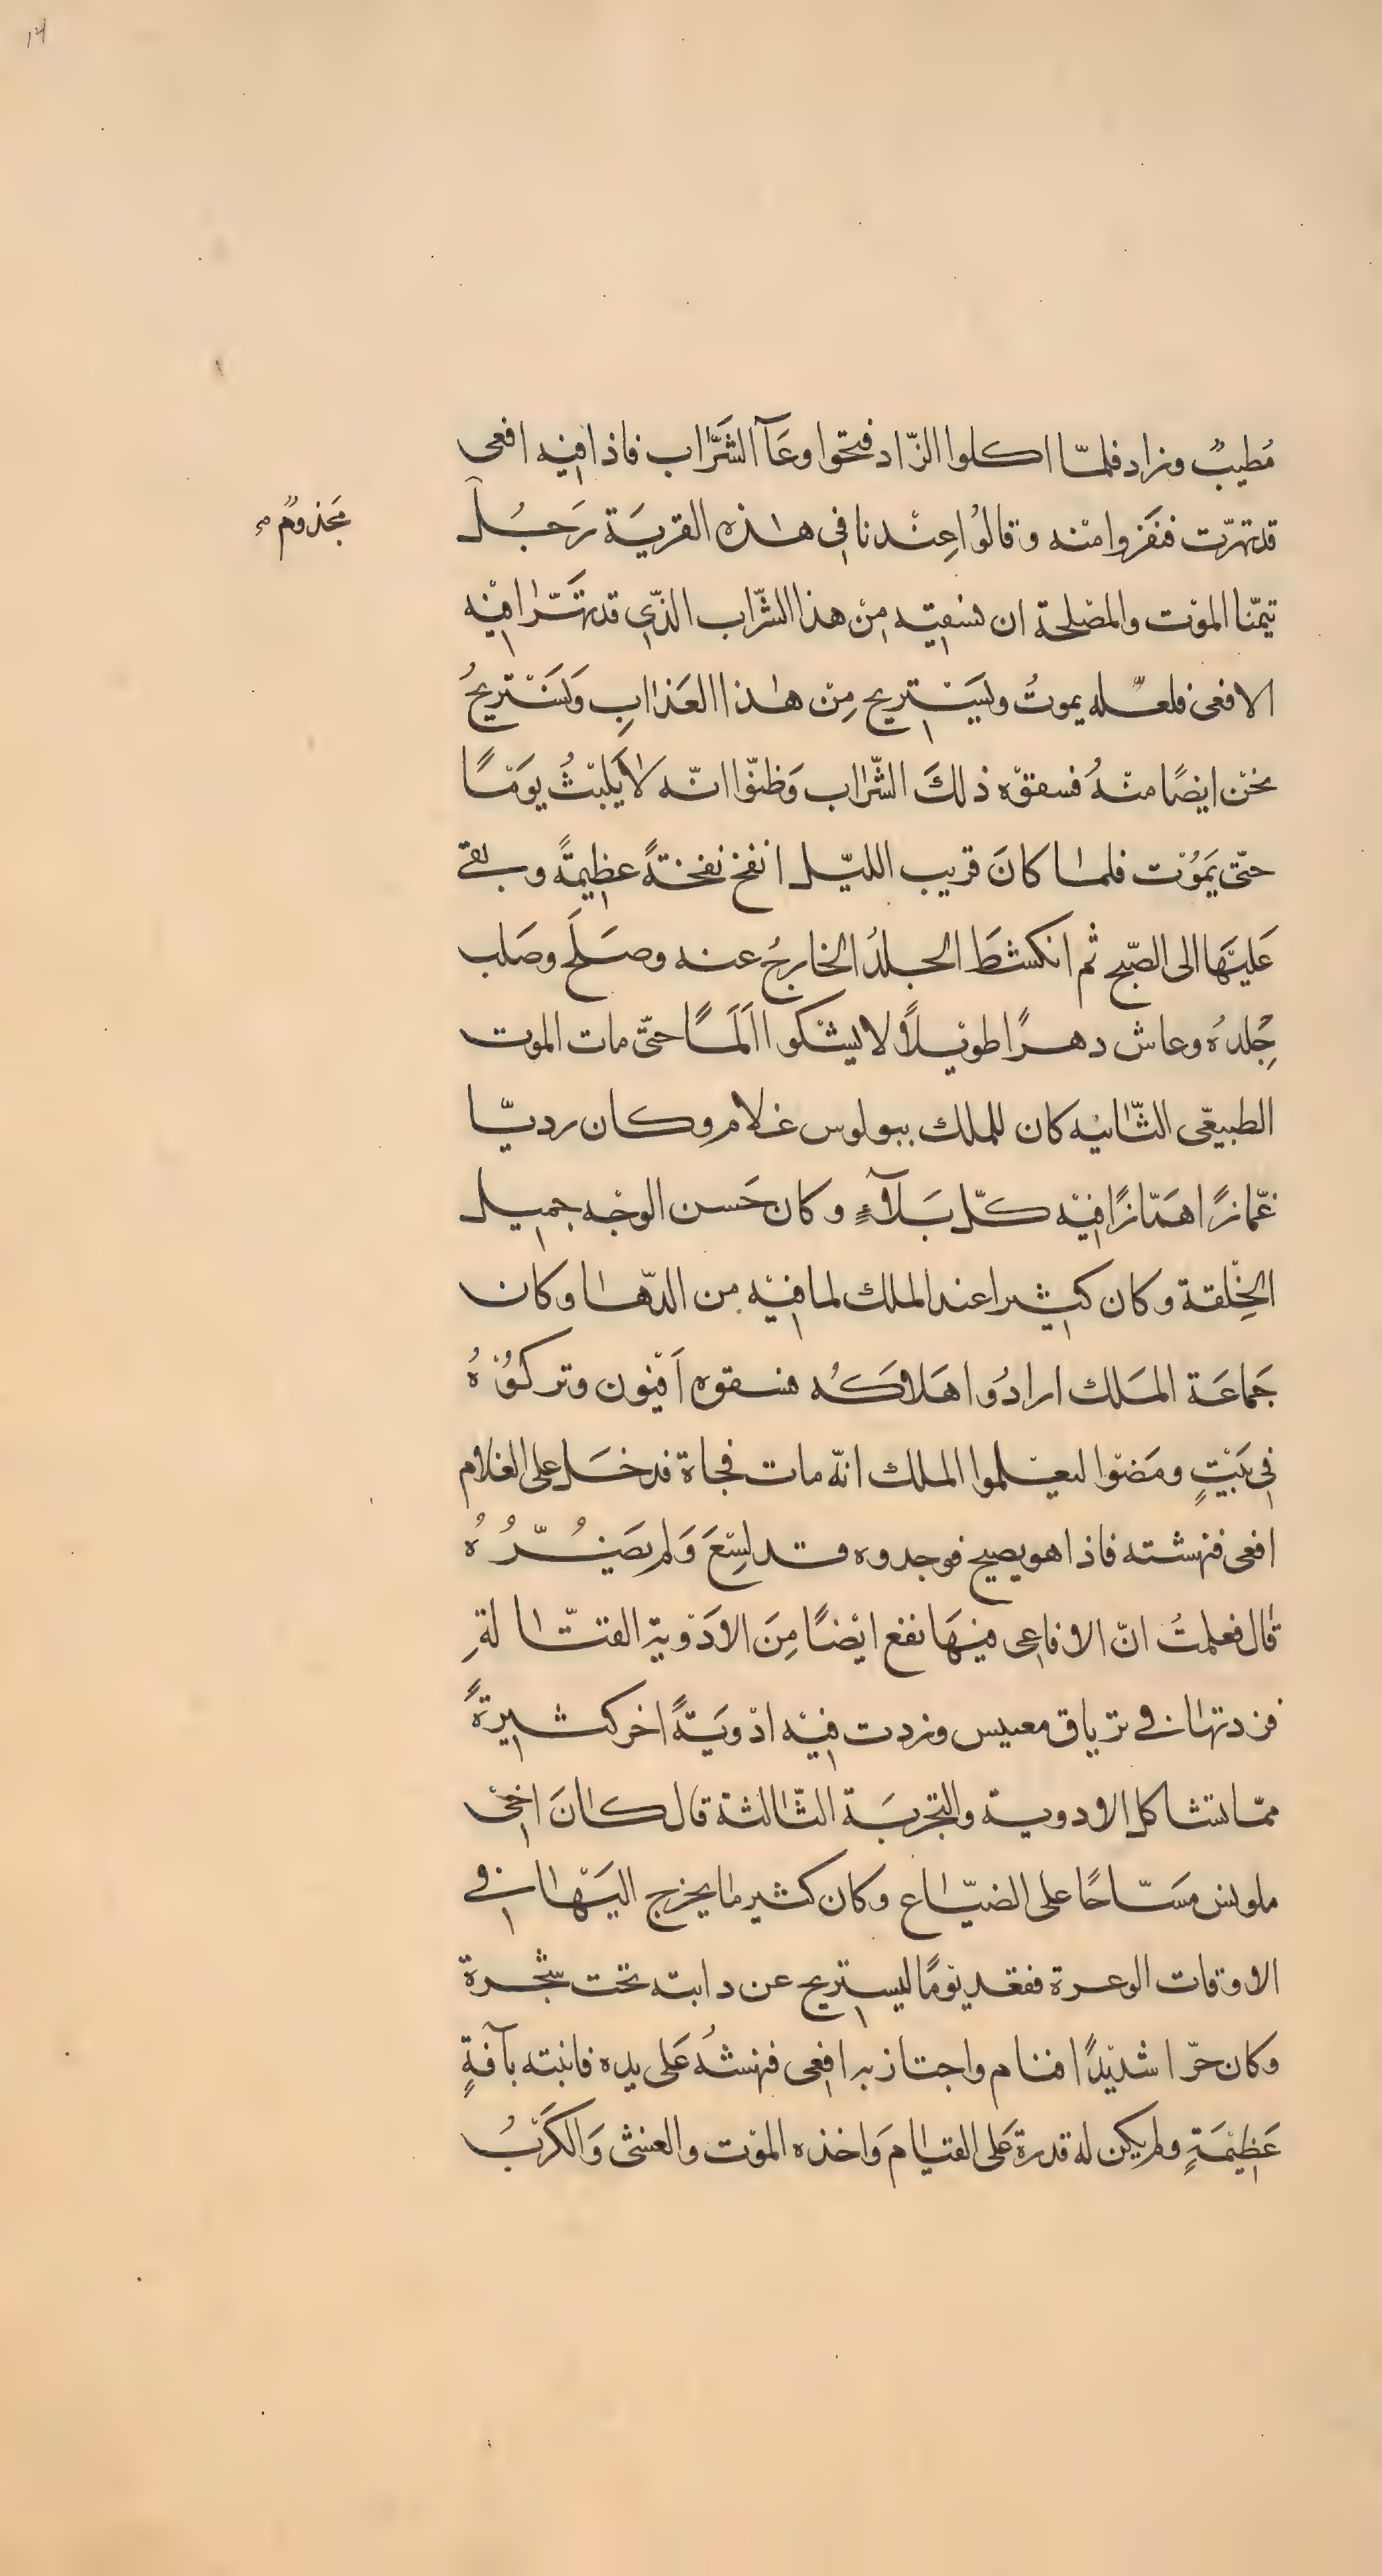 ١٤
مُطيبٌ وزاد فلمّا اكلوا الزّاد فتحوا وعَآ الشَّراب فاذا فيه افعى
قد تهرّت فنفَروا منه وقالُوا عِندنا فى هٰذه القريَة رَجُلٌ
مَجذومٌ صح
تيمّنا الموت والمصلحة ان نسقيه مِن هذا الشّراب الذّى قد تهَرّا فيْه
الافعى فلعلّه يموتُ ويَستريح مِن هٰذا العَذابِ ونَسْتريحُ
نحن ايضًا منْهُ فسقوْه ذلكَ الشّراب وَظنّوا انّه لا يَلبْثُ يوَمًا
حتّى يَمُوْت فلمّا كانَ قريب الليّل انفخ نفخةً عظِيمةً وبقى
عَليْهَا الى الصّبح ثم انكشطَ الجلدُ الخارجُ عنه وصَلحَ وصَلب
جِلدُهُ وعاش دهرًا طوْيلًا لا يشْكوا اَلَمًا حتّى مات الموت
الطبيعّى الثّانيْه كان للملك ببولوس غلام وكان رديّا
غمّازًا همّازًا فيْه كلّ بَلآءٍ وكان حَسن الوجْه جميل
الخِلقة وكان كثيرا عند الملك لما فيْه من الدّها وكان
جَماعَة المَلك ارادُوا هَلاكَهُ فسقوه اَفيْون وتركوُْهُ
فى بَيْتٍ ومَضوْا ليعْلموا الملك انّه مات فجاة فدخَل على الغلام
افعى فنهشته فاذا هو يصيح فوجدوه قد لسِعَ وَلم يَضُرُّهُ
قال فعلمتُ انّ الافاعى فيهَا نفع ايْضًا مِنَ الادَوْية القتّالةِ
فزدتها فى ترياق معيس وزدت فيْه ادْويَةً اخر كثيرةً
ممّا تشاكل الادوية والتجربَة الثّالثة قال كانَ اخى
ملوس مَسّاحًا على الضيّاع وكان كثير ما يخرج اليْها فى
الاوقات الوعرة فقعد يوْمًا ليستريح عن دابته تحت شجرة
وكان حرّا شديْدًا فنام واجتاز به افعى فنهشهُ عَلى يده فانبته بآفةٍ
عَظيْمَةٍ ولم يكن له قدرة عَلى القيام وَاخذه الموْت والغشى وَالكَرْبُ